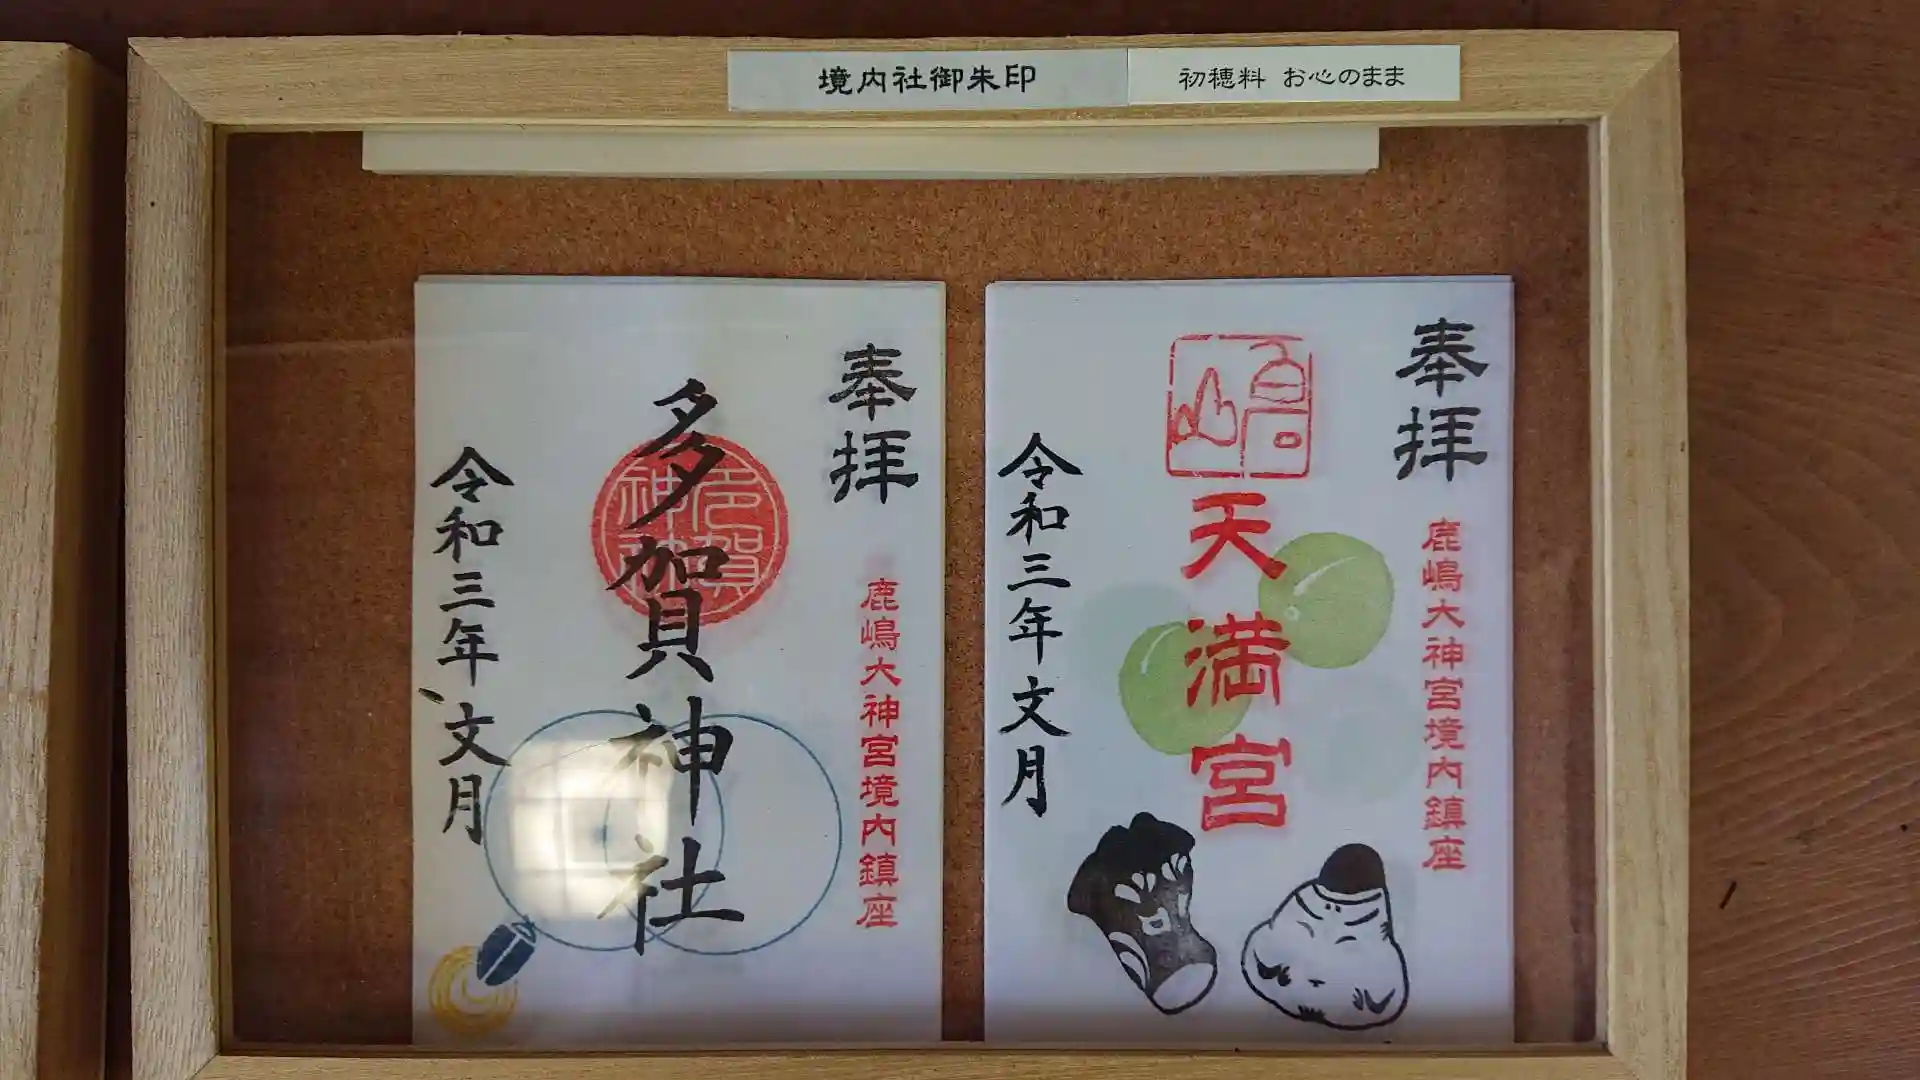 境内社御朱印
初穂料 お心のまま
奉拝
鹿嶋大神宮境内鎮座
天満宮
令和三年文月
奉拝
鹿嶋大神宮境内鎮座
多賀神社
令和三年文月